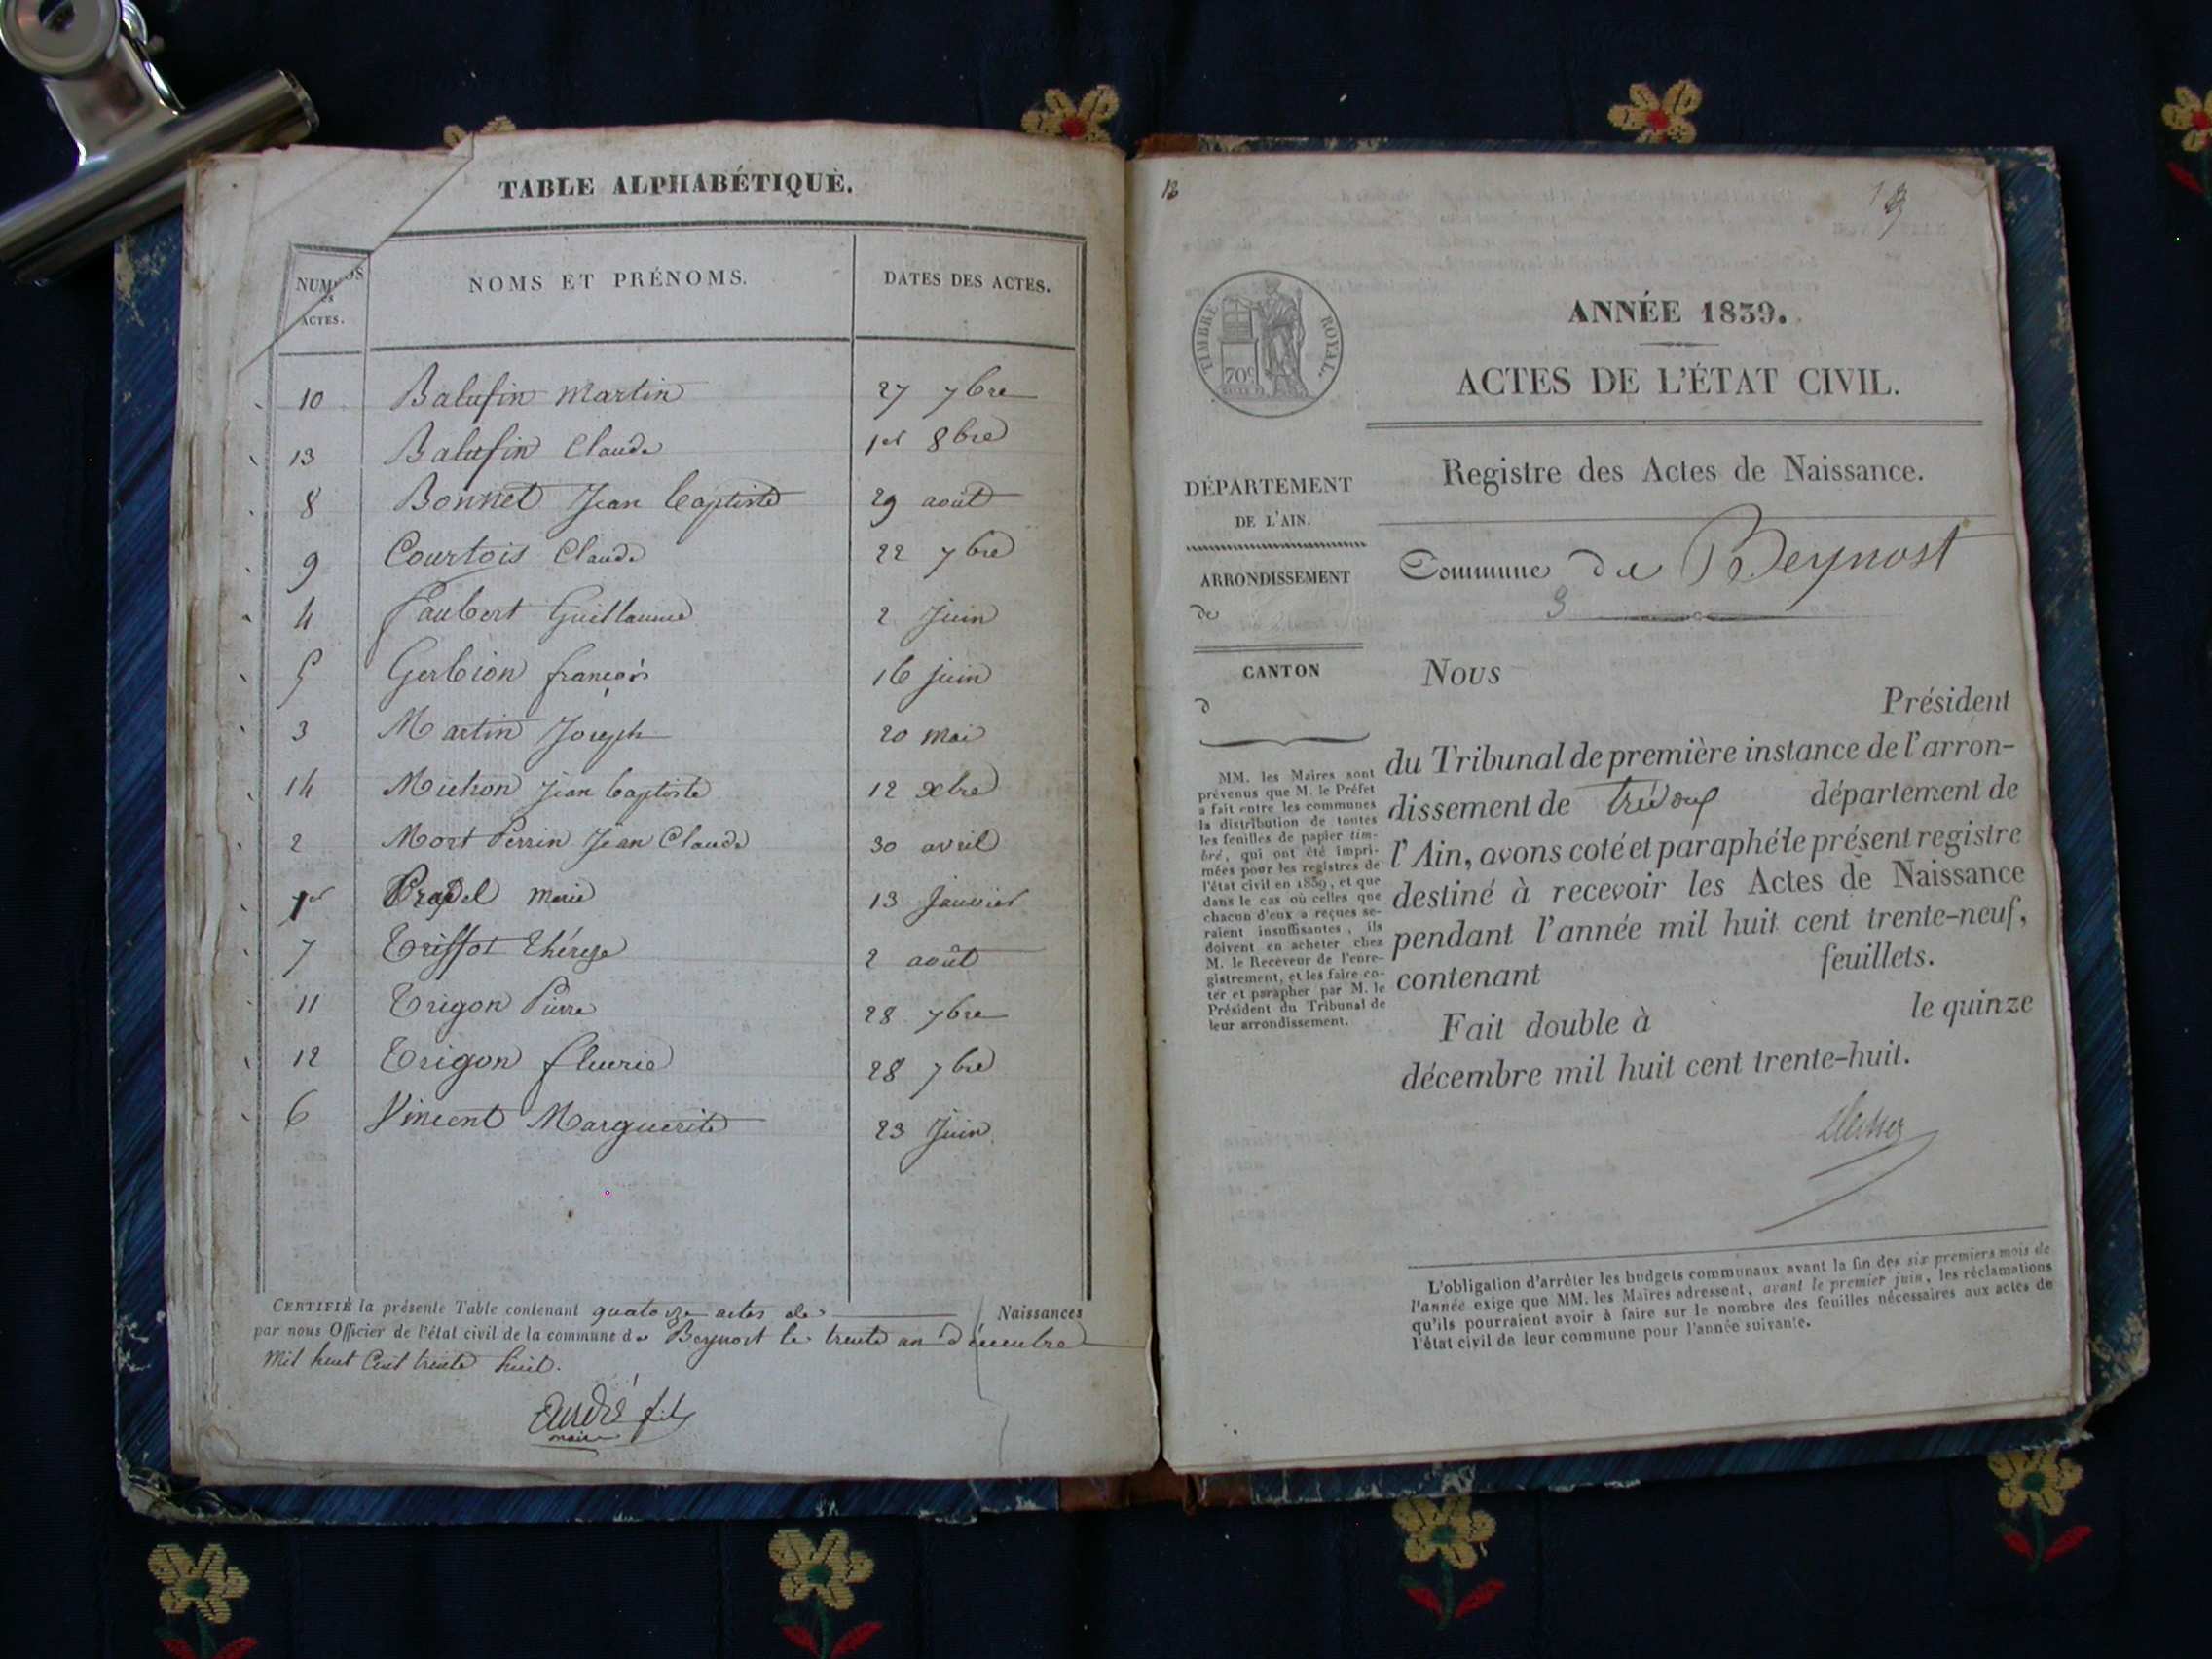 TABLE ALPHABÉTIQUE.
NUMÉROS
ACTES.
NOMS ET PRÉNOMS.
DATES DES ACTES.
10 Balufin Martin 27 7bre
13 Balufin Claude 1er 8bre
8 Bonnet Jean baptiste 29 août
9 Courtois Claude 22 7bre
4 Faubert Guillaume 2 Juin
5 Gerbion françois 16 juin
3 Martin Joseph 20 mai
14 Michon Jean baptiste 12 xbre
2 Mort Perrin Jean Claude 30 avril
1er Pradel Marie 13 Janvier
7 Trissot Thérèse 2 août
11 Trigon Pierre 28 7bre
12 Trigon fleurie 28 7bre
6 Vincent Marguerite 23 Juin
CERTIFIÉ la présente Table contenant quatorze actes de Naissances
par nous Officier de l'état civil de la commune de Beynost le trente un décembre
mil huit Cent trente huit.
André fils
maire
18
ANNÉE 1839.
ACTES DE L'ÉTAT CIVIL.
TIMBRE ROYAL.
70c
Registre des Actes de Naissance.
Commune de Beynost
DÉPARTEMENT
DE L'AIN.
ARRONDISSEMENT
de
CANTON
d
MM. les Maires sont
prévenus que M. le Préfet
a fait entre les communes
la distribution de toutes
les feuilles de papier tim-
bré, qui ont été impri-
mées pour les registres de
l'état civil en 1839, et que
dans le cas où celles que
chacun d'eux a reçues se-
raient insuffisantes, ils
doivent en acheter chez
M. le Receveur de l'enre-
gistrement, et les faire co-
ter et parapher par M. le
Président du Tribunal de
leur arrondissement.
Nous
Président
du Tribunal de première instance de l'arron-
dissement de trévoux département de
l'Ain, avons coté et paraphé le présent registre
destiné à recevoir les Actes de Naissance
pendant l'année mil huit cent trente-neuf,
contenant feuillets.
Fait double à le quinze
décembre mil huit cent trente-huit.
L'obligation d'arrêter les budgets communaux avant la fin des six premiers mois de
l'année exige que MM. les Maires adressent, avant le premier juin, les réclamations
qu'ils pourraient avoir à faire sur le nombre des feuilles nécessaires aux actes de
l'état civil de leur commune pour l'année suivante.